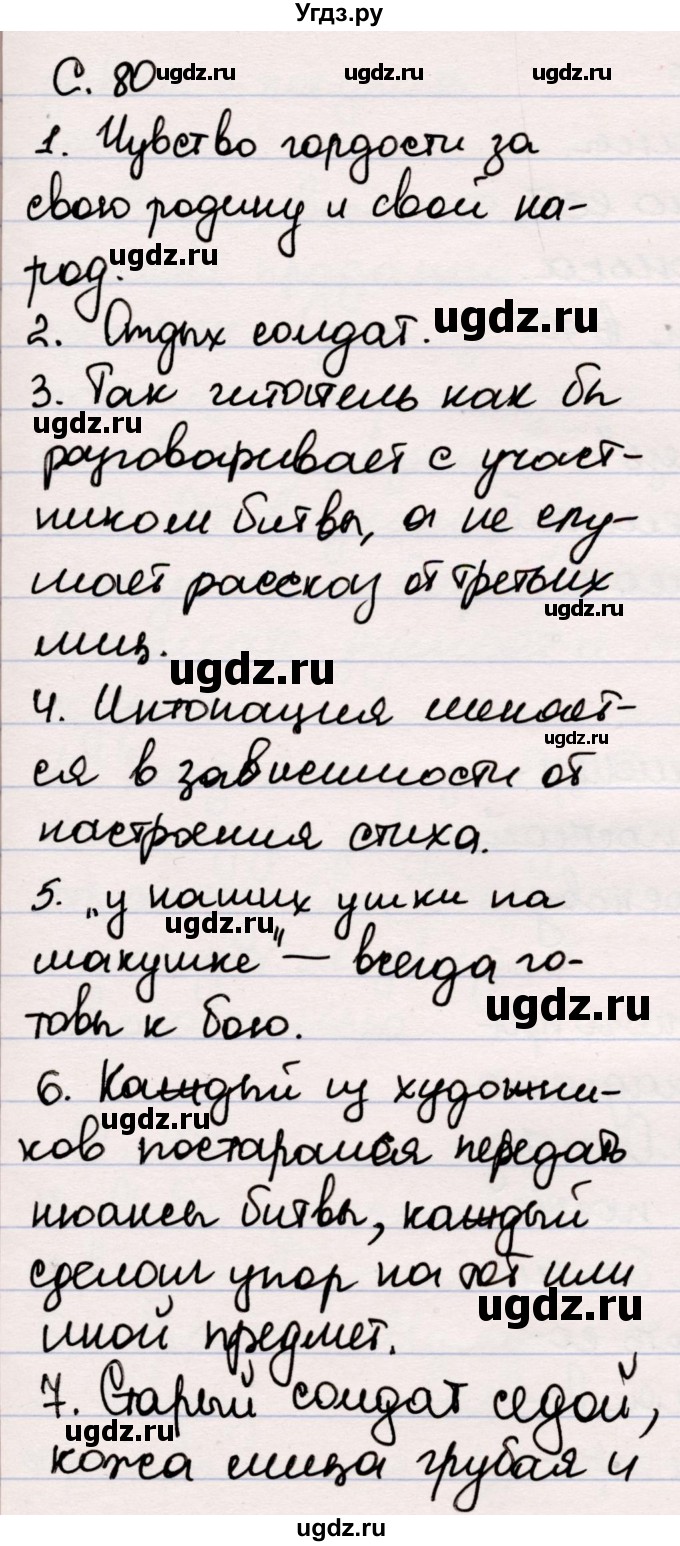 Угдз.ру
С. 80 ugdz.ru ugdz.ru ugdz.ru
1. Чувство гордости за
свою родину и свой на-
род. ugdz.ru
2. Отдых солдат. ugdz.ru
3. Так читатель как бы
ugdz.ru
разговаривает с участ-
ником битвы, а не слу-
шает рассказ от третьих
ugdz.ru
лиц. ugdz.ru
4. Интонация меняет-
ugdz.ru
ся в зависимости от
настроения стиха.
5. "у наших ушки на
ugdz.ru
макушке" — всегда го-
товы к бою. ugdz.ru
6. Каждый из художни-
ugdz.ru
ков постарался передать
нюансы битвы, каждый
сделал упор на тот или
ugdz.ru
иной предмет.
7. Старый солдат седой,
ugdz.ru
кожа лица грубая и
ugdz.ru